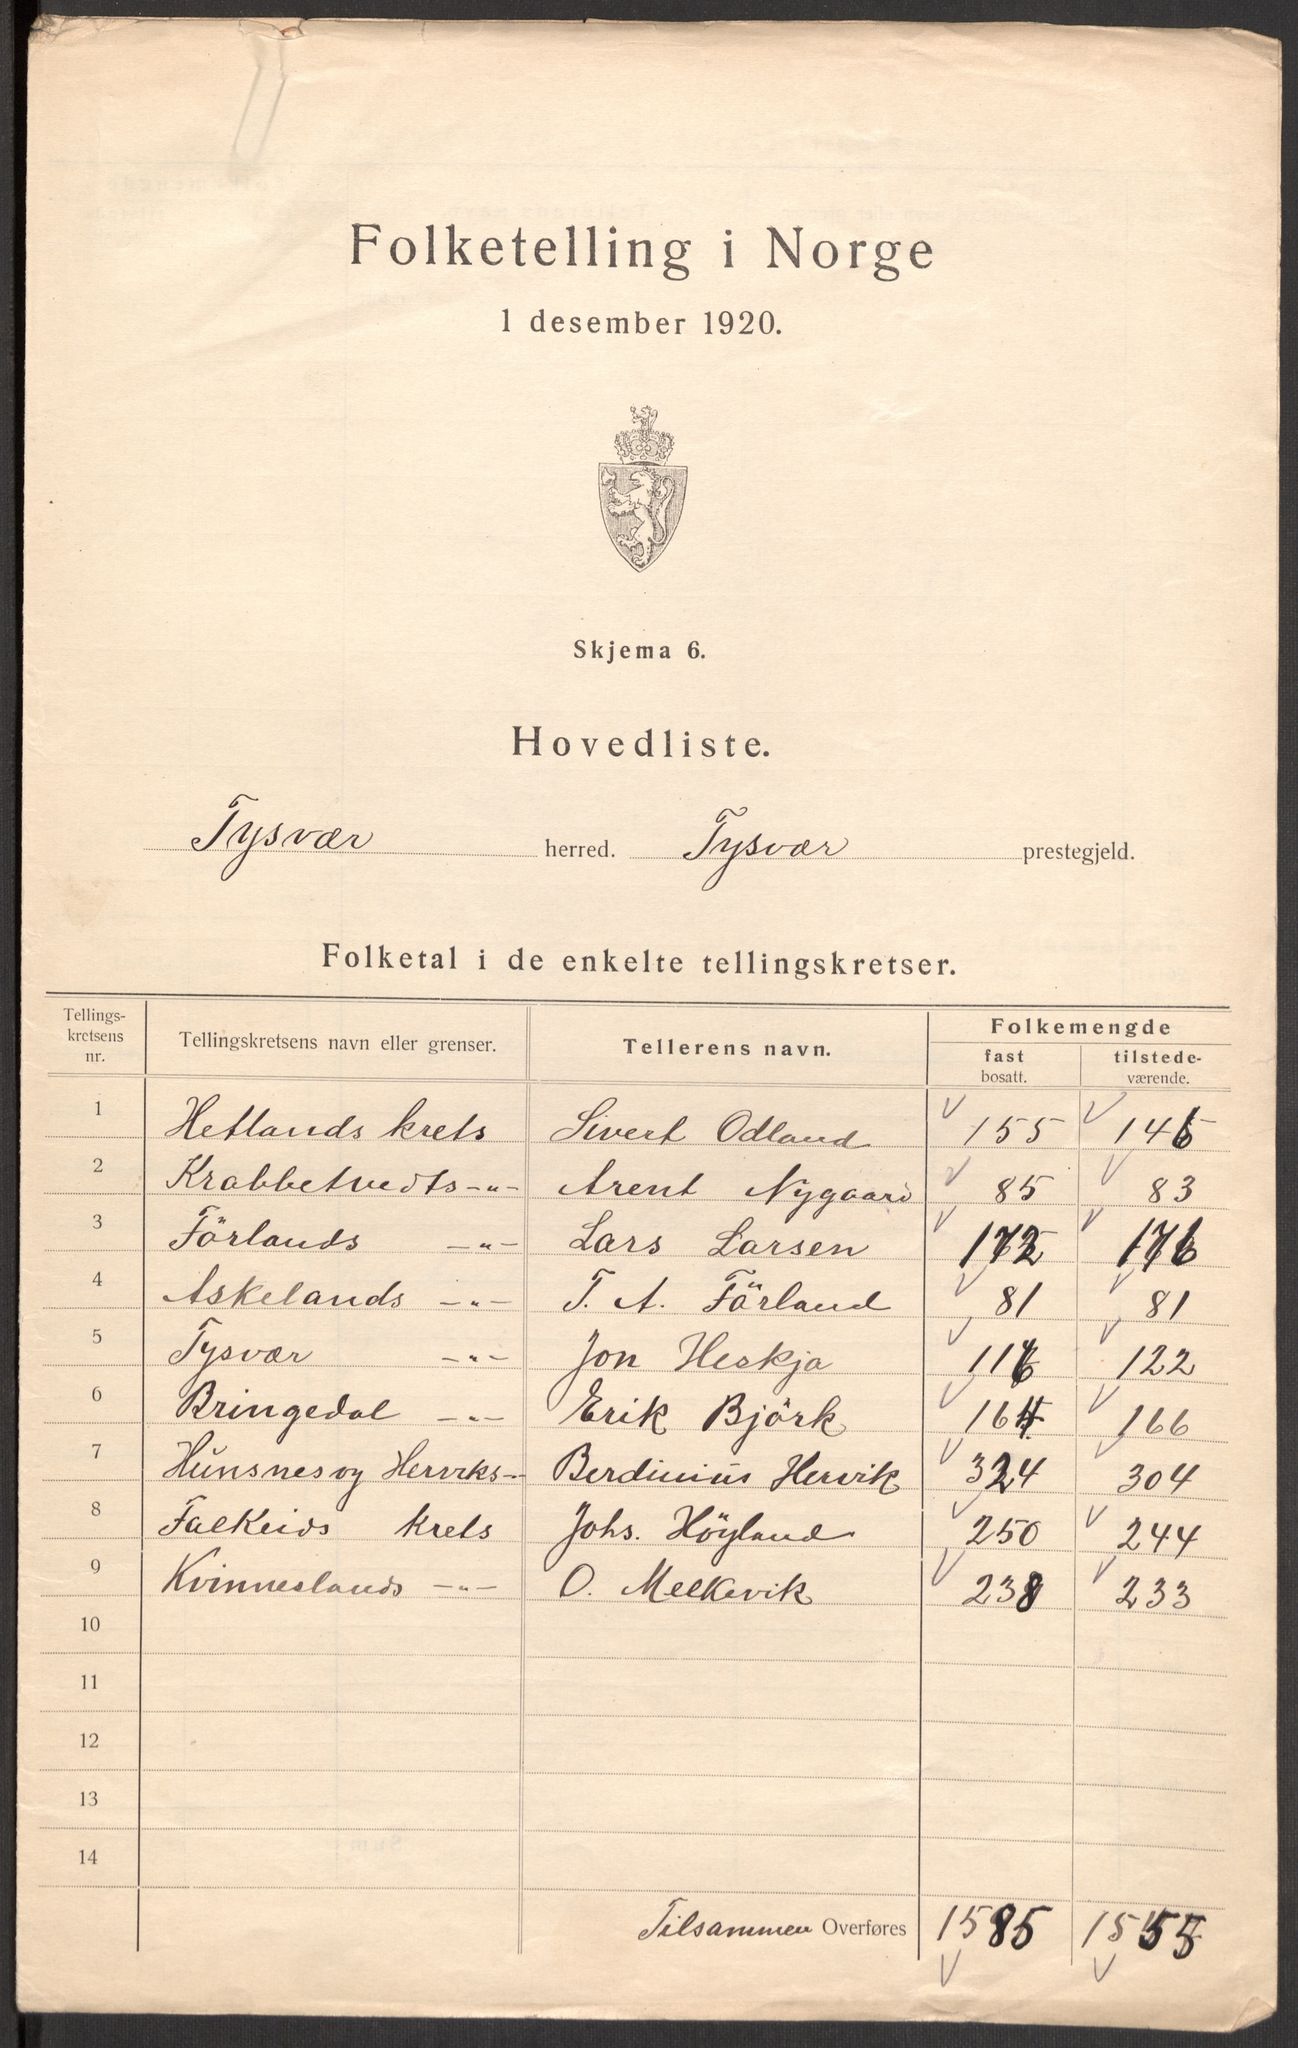 Folketelling i Norge
1 desember 1920.
Skjema 6.
Hovedliste.
Tysvær herred. Tysvær prestegjeld.
Folketal i de enkelte tellingskretser.
Tellings-
kretsens
nr.
Tellingskretsens navn eller grenser.
Tellerens navn.
Folkemengde
fast
bosatt.
tilstede-
værende.
1 Hetlands krets Sivert Odland 155 146
2 Krabbetvedts -"- Arent Nygaard 85 83
3 Förlands -"- Lars Larsen 172 176
4 Askelands -"- T. A. Förland 81 81
5 Tysvær -"- Jon Heskja 116 122
6 Bringedal -"- Erik Björk 164 166
7 Hunsnes og Herviks -"- Berdinius Hervik 324 304
8 Falkeids krets Johs. Höyland 250 244
9 Kvinneslands -"- O. Melkevik 238 233
10
11
12
13
14
Tilsammen Overføres 1585 1555